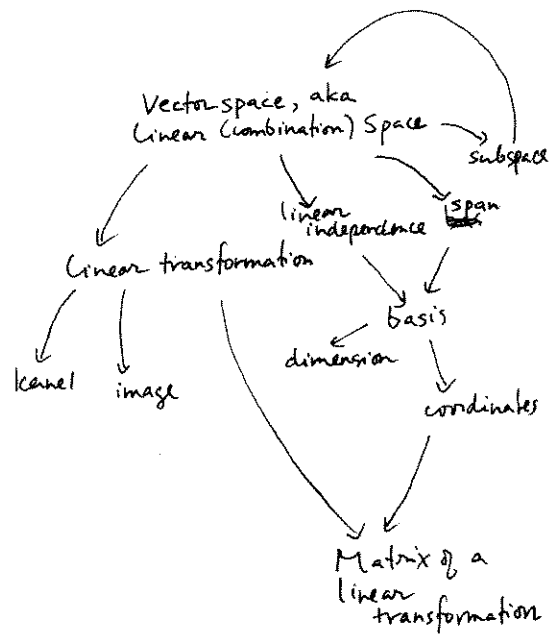 Vector space, aka
Linear (Combination) Space
subspace
linear
independence
span
Linear transformation
basis
dimension
kernel
image
coordinates
Matrix of a
linear
transformation